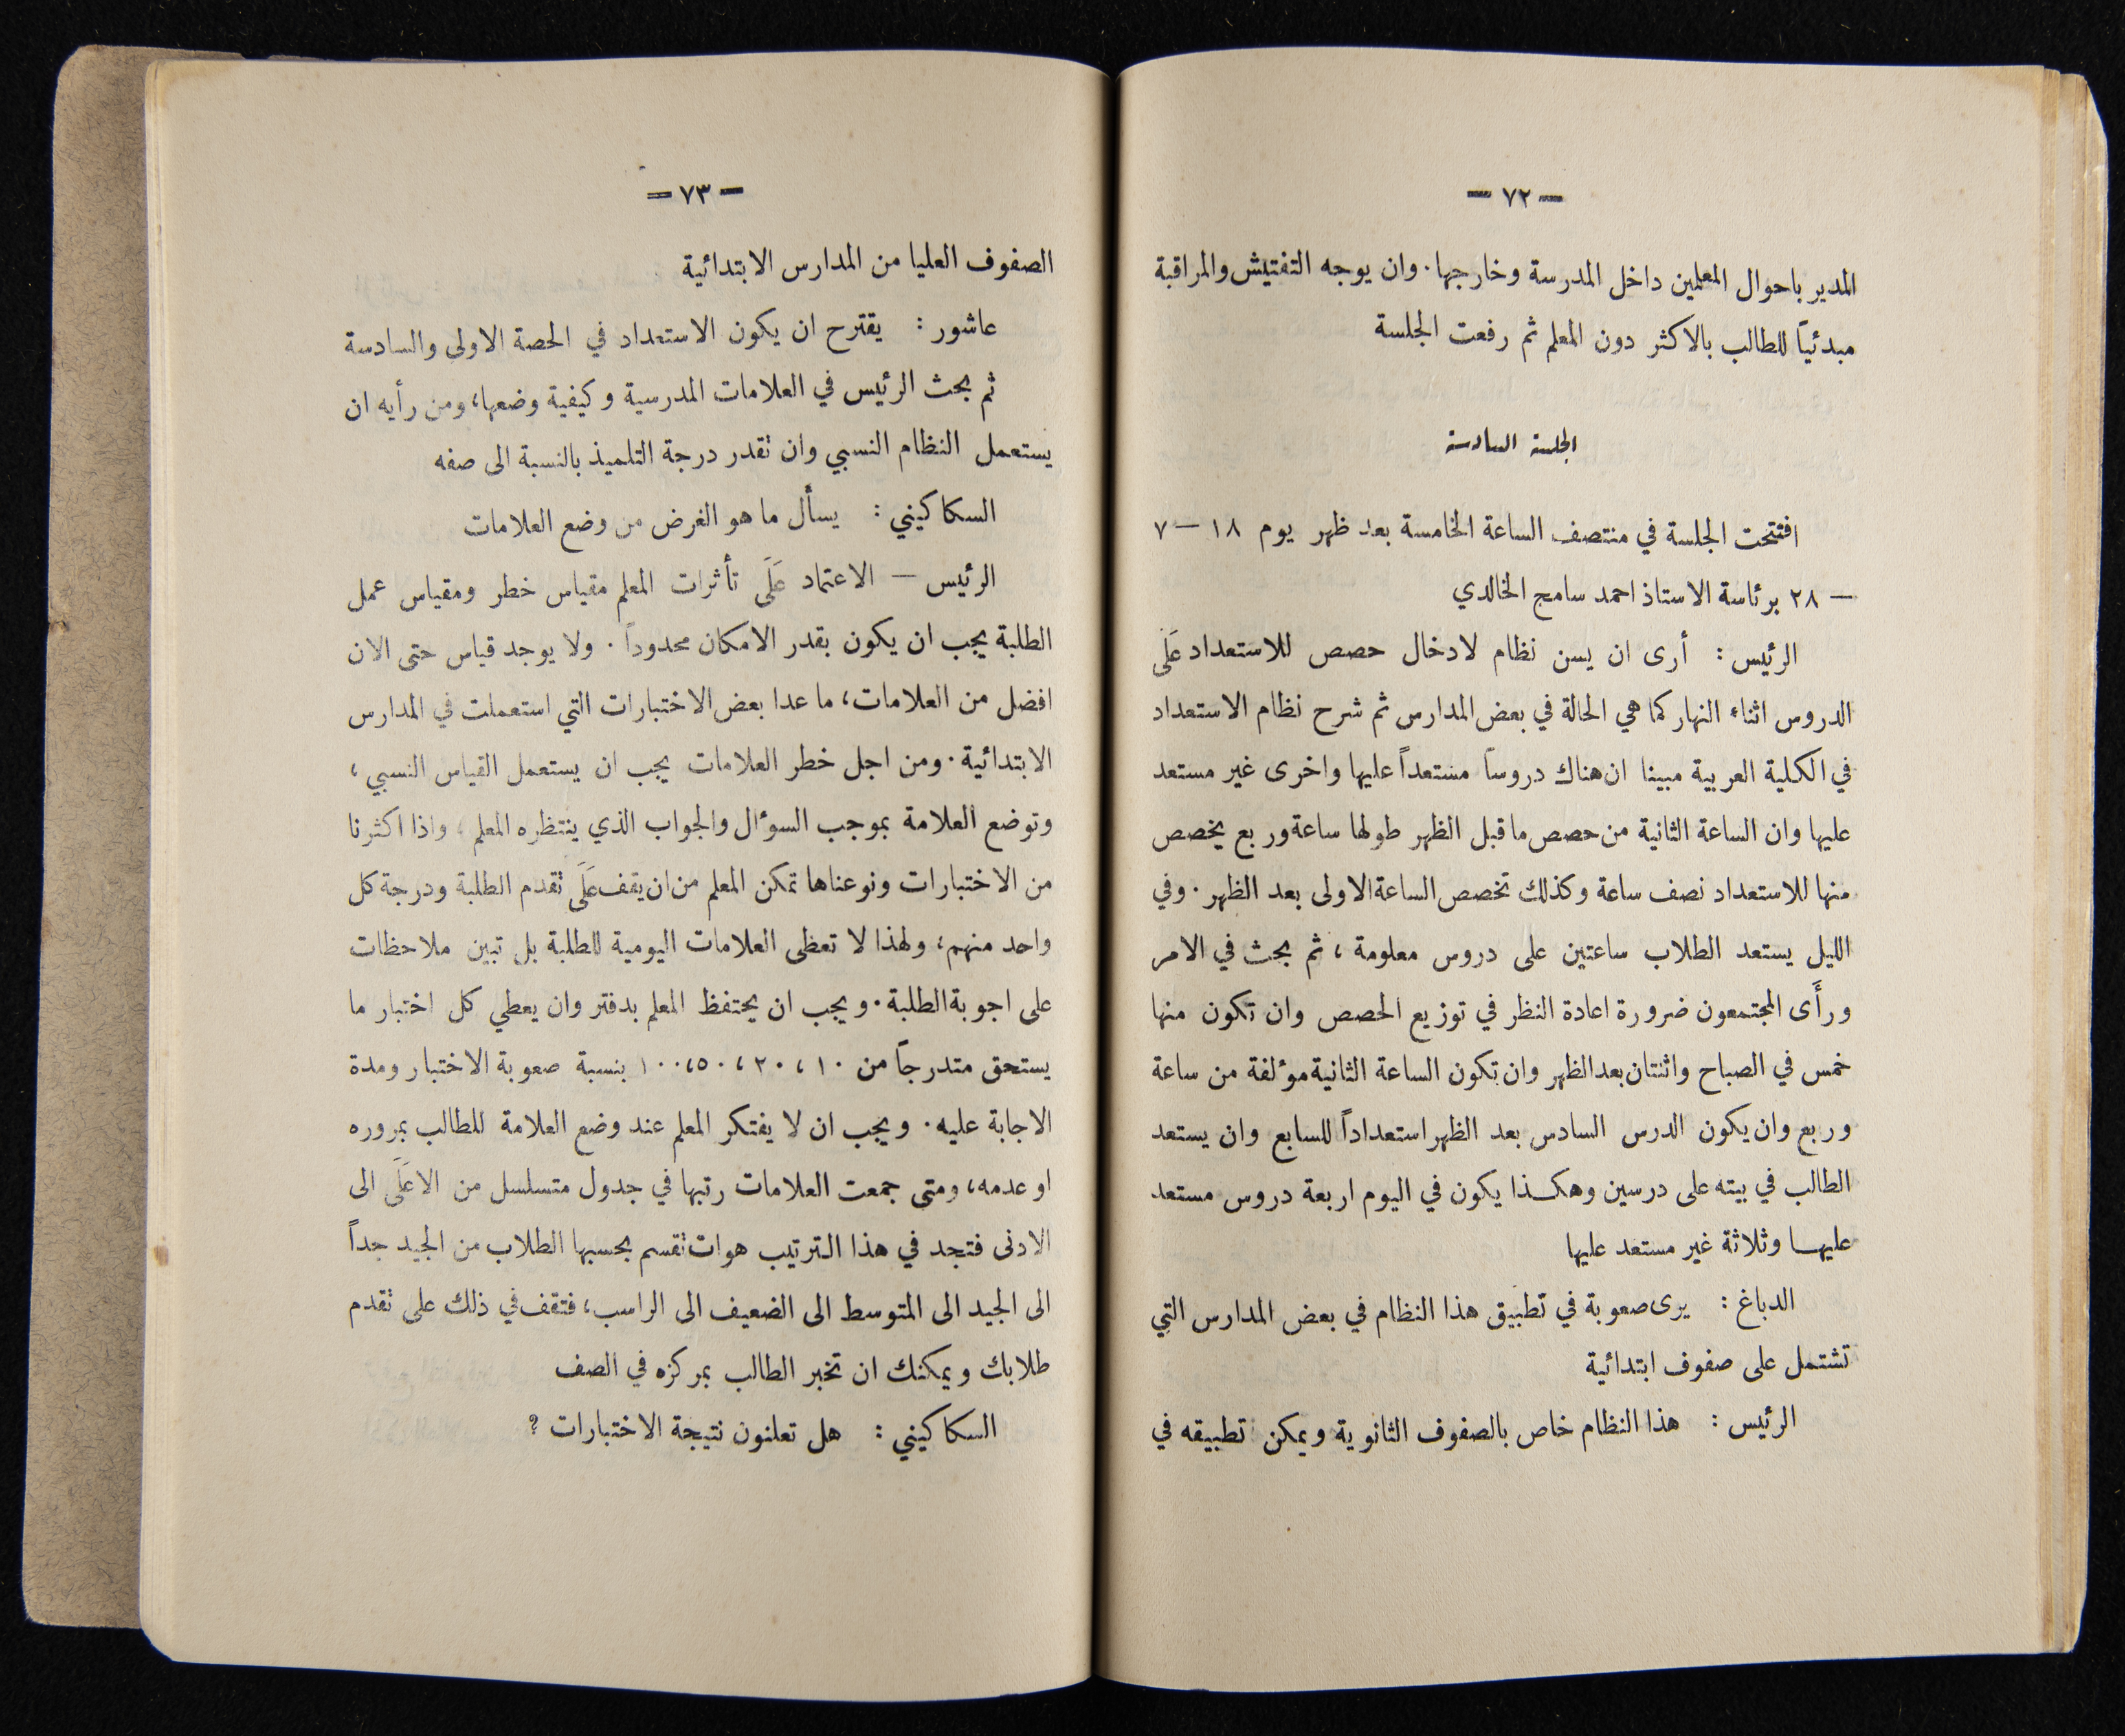 — ٧٢ —
المدير باحوال المعلمين داخل المدرسة وخارجها. وان يوجه التفتيش والمراقبة
مبدئياً للطالب بالاكثر دون المعلم ثم رفعت الجلسة
الجلسة السادسة
افتتحت الجلسة في منتصف الساعة الخامسة بعد ظهر يوم ١٨ — ٧
— ٢٨ برئاسة الاستاذ احمد سامح الخالدي
الرئيس : أرى ان يسن نظام لادخال حصص للاستعداد عَلَى
الدروس اثناء النهار كما هي الحالة في بعض المدارس ثم شرح نظام الاستعداد
في الكلية العربية مبينا ان هناك دروساً مستعداً عليها واخرى غير مستعد
عليها وان الساعة الثانية من حصص ما قبل الظهر طولها ساعة وربع يخصص
منها للاستعداد نصف ساعة وكذلك تخصص الساعة الاولى بعد الظهر. وفي
الليل يستعد الطلاب ساعتين على دروس معلومة ، ثم بحث في الامر
ورأَى المجتمعون ضرورة اعادة النظر في توزيع الحصص وان تكون منها
خمس في الصباح واثنتان بعد الظهر وان تكون الساعة الثانية مؤلفة من ساعة
وربع وان يكون الدرس السادس بعد الظهر استعداداً للسابع وان يستعد
الطالب في بيته على درسين وهكذا يكون في اليوم اربعة دروس مستعد
عليها وثلاثة غير مستعد عليها
الدباغ : يرى صعوبة في تطبيق هذا النظام في بعض المدارس التي
تشتمل على صفوف ابتدائية
الرئيس : هذا النظام خاص بالصفوف الثانوية ويمكن تطبيقه في
— ٧٣ —
الصفوف العليا من المدارس الابتدائية
عاشور : يقترح ان يكون الاستعداد في الحصة الاولى والسادسة
ثم بحث الرئيس في العلامات المدرسية وكيفية وضعها، ومن رأيه ان
يستعمل النظام النسبي وان تقدر درجة التلميذ بالنسبة الى صفه
السكاكيني : يسأل ما هو الغرض من وضع العلامات
الرئيس — الاعتماد عَلَى تأثرات المعلم مقياس خطر ومقياس عمل
الطلبة يجب ان يكون بقدر الامكان محدوداً . ولا يوجد قياس حتى الان
افضل من العلامات، ما عدا بعض الاختبارات التي استعملت في المدارس
الابتدائية. ومن اجل خطر العلامات يجب ان يستعمل القياس النسبي ،
وتوضع العلامة بموجب السوءال والجواب الذي ينتظره المعلم ، واذا اكثرنا
من الاختبارات ونوعناها تمكن المعلم من ان يقف عَلَى تقدم الطلبة ودرجة كل
واحد منهم، ولهذا لا تعظى العلامات اليومية للطلبة بل تبين ملاحظات
على اجوبة الطلبة. ويجب ان يحتفظ المعلم بدفتر وان يعطي كل اختبار ما
يستحق متدرجاً من ١٠ ، ٢٠ ، ٥٠، ١٠٠ بنسبة صعوبة الاختبار ومدة
الاجابة عليه. ويجب ان لا يفتكر المعلم عند وضع العلامة للطالب بمروره
او عدمه، ومتى جمعت العلامات رتبها في جدول متسلسل من الاعلَى الى
الادنى فتجد في هذا الترتيب هوات تقسم بحسبها الطلاب من الجيد جداً
الى الجيد الى المتوسط الى الضعيف الى الراسب، فتقف في ذلك على تقدم
طلابك ويمكنك ان تخبر الطالب بمركزه في الصف
السكاكيني : هل تعلنون نتيجة الاختبارات ؟